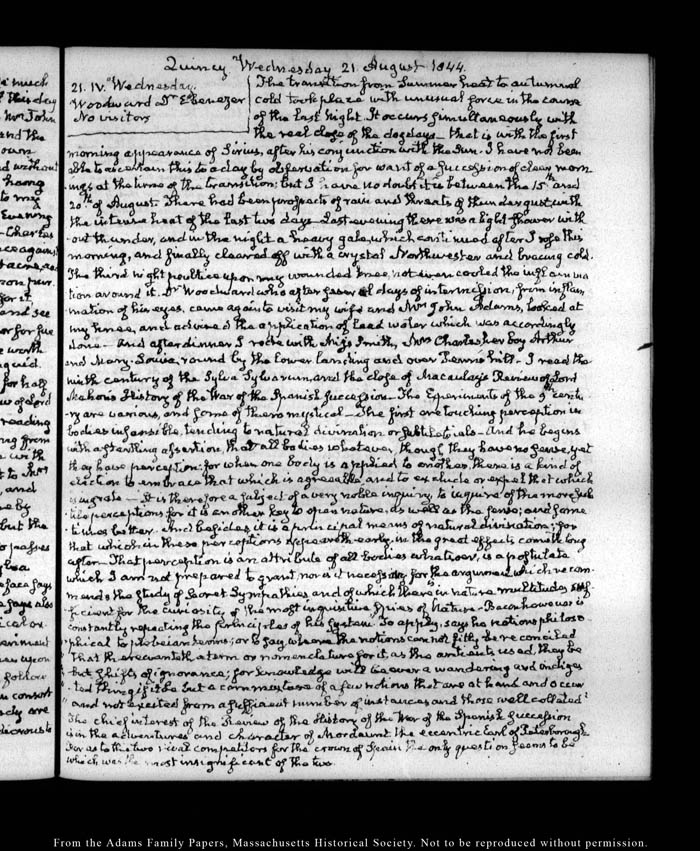 Quincy Wednesday 21 August 1844.
21. IV. Wednesday.
Woodward Dr Ebenezer
No visitors
The transition from Summer heat to autumnal
cold took place with unusual force in the course
of the last Night. It occurs simultaneously with
the real close of the dogdays — that is with the first
morning appearance of Sirius, after his conjunction with the Sun. I have not been
able to ascertain this to a day by observation for want of a succession of clear morn
ings at the time of the transition; but I have no doubt it is between the 15th and
20th of August. There had been prospects of rain and threats of thunder gust with
the intense heat of the last two days. Last evening there was a light shower with
out thunder, and in the night a heavy gale, which continued after I rose this
morning, and finally cleared off with a crystal Northwester and bracing cold.
The third night poultice upon my wounded knee, not even cooled the inflamma
tion around it. Dr Woodward who after several days of intermission, from inflam
mation of his eyes, came again to visit my wife and Mrs John Adams, looked at
my knee, and advised the application of lead water which was accordingly
done — And after dinner I rode with Miss Smith, Mrs Charles her boy Arthur
and Mary-Louisa, round by the lower landing and over Penns hill. I read the
ninth century of the Sylva Sylvarum, and the close of Macaulay's Review of Lord
Mahon's History of the War of the Spanish Succession. The Experiments of the 9th centu
ry are various, and some of them mystical — The first are touching perception in
bodies insensible, tending to natural divination or subtile trials — And he begins
with a startling assertion, that all bodies whatever, though they have no sense, yet
they have perception: for when one body is applied to another, there is a kind of
election to embrace that which is agreeable, and to exclude or expel that which
is ingrate — It is therefore a subject of a very noble inquiry, to inquire of the more sub
tile perceptions; for it is another key to open nature, as well as the sense; and some
times better. And besides, it is a principal means of natural divination; for
that which in these perceptions appeareth early, in the great effects cometh long
after — That perception is an attribute of all bodies whatsoever, is a postulate
which I am not prepared to grant, nor is it necessary for the argument which recom
mends the study of secret Sympathies and of which there is in nature multitudes suf
ficient for the curiosity of the most inquisitive spies of Nature — Bacon however is
constantly repeating the principles of his System. To apply, says he notions philoso
phical to plebeian terms; or to say where the notions cannot fitly be reconciled
that there wanteth a term or nomenclature for it, as the antients used, they be
but shifts of ignorance; for knowledge will be ever a wandering and indiges
ted thing if it be but a commixture of a few notions that are at hand and occur
and not excited from a sufficient number of instances and those well collated
The chief interest of the Review of the History of the War of the Spanish Succession
is in the adventures and character of Mordaunt the eccentric Earl of Peterborough
For as to the two rival competitors for the crown of Spain the only question seems to be
which was the most insignificant of the two.
From the Adams Family Papers, Massachusetts Historical Society. Not to be reproduced without permission.